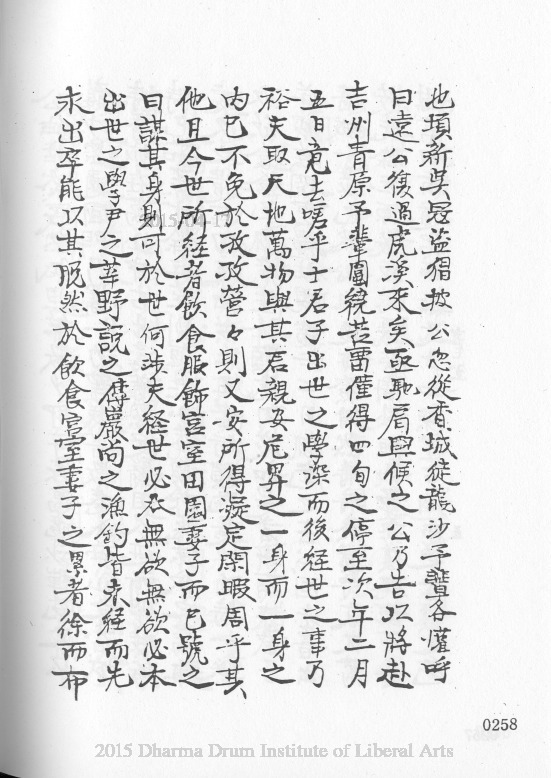 也頃新吳冦盜猖披公忽從香城徒龍沙予輩各懽呼
曰遠公復過虎溪來矣亟馳肩輿候之公乃告以將赴
吉州青原予輩圍繞苦畱僅得四旬之停至次年二月
五日竟去嗟乎士君子出世之學深而後経世之事乃
裕夫取天地萬物與其君親安危畀之一身而一身之
内已不免於孜孜營々則又安所得凝定閑暇周乎其
他且今世所経者飲食服飾宮室田園妻子而已號之
曰謀其身則可於世何涉夫経世必本無欲無欲必本
出世之學尹之莘野說之傅巖尚之漁釣皆未経而先
求出卒能以其脫然於飲食宮室妻子之累者徐而布
0258
2015 Dharma Drum Institute of Liberal Arts